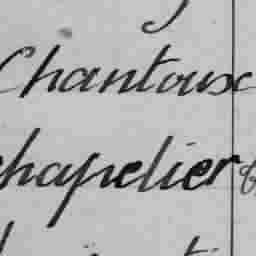 Chantoux
chapelier